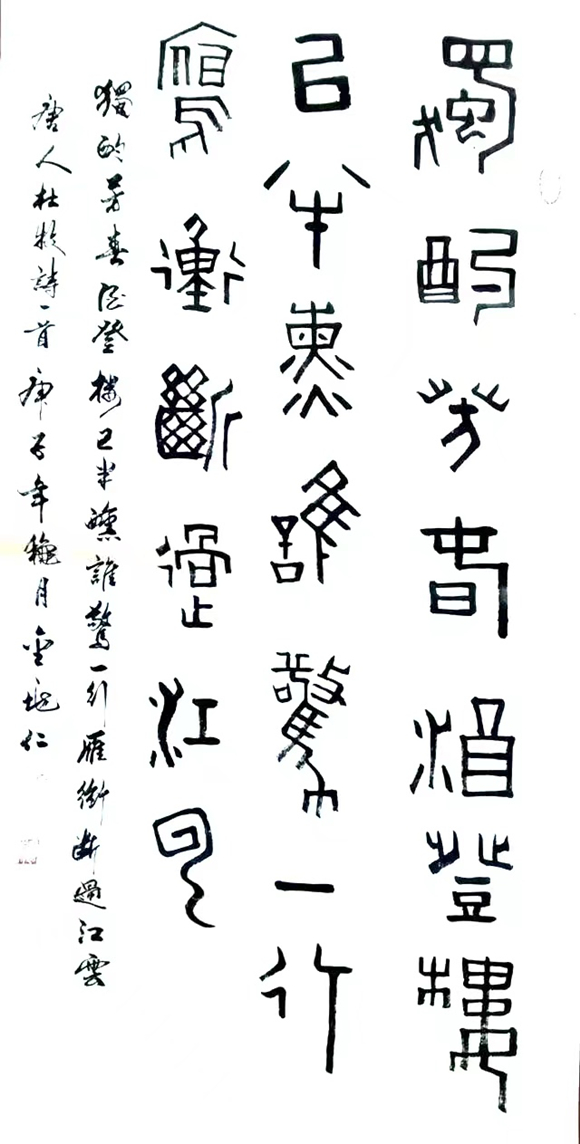 獨酌芳春酒登樓
已半熏誰驚一行
鴈衝斷過江云
獨酌芳春酒登樓已半醺誰驚一行雁衝斷過江雲
唐人杜牧詩一首庚子年龝月金仁